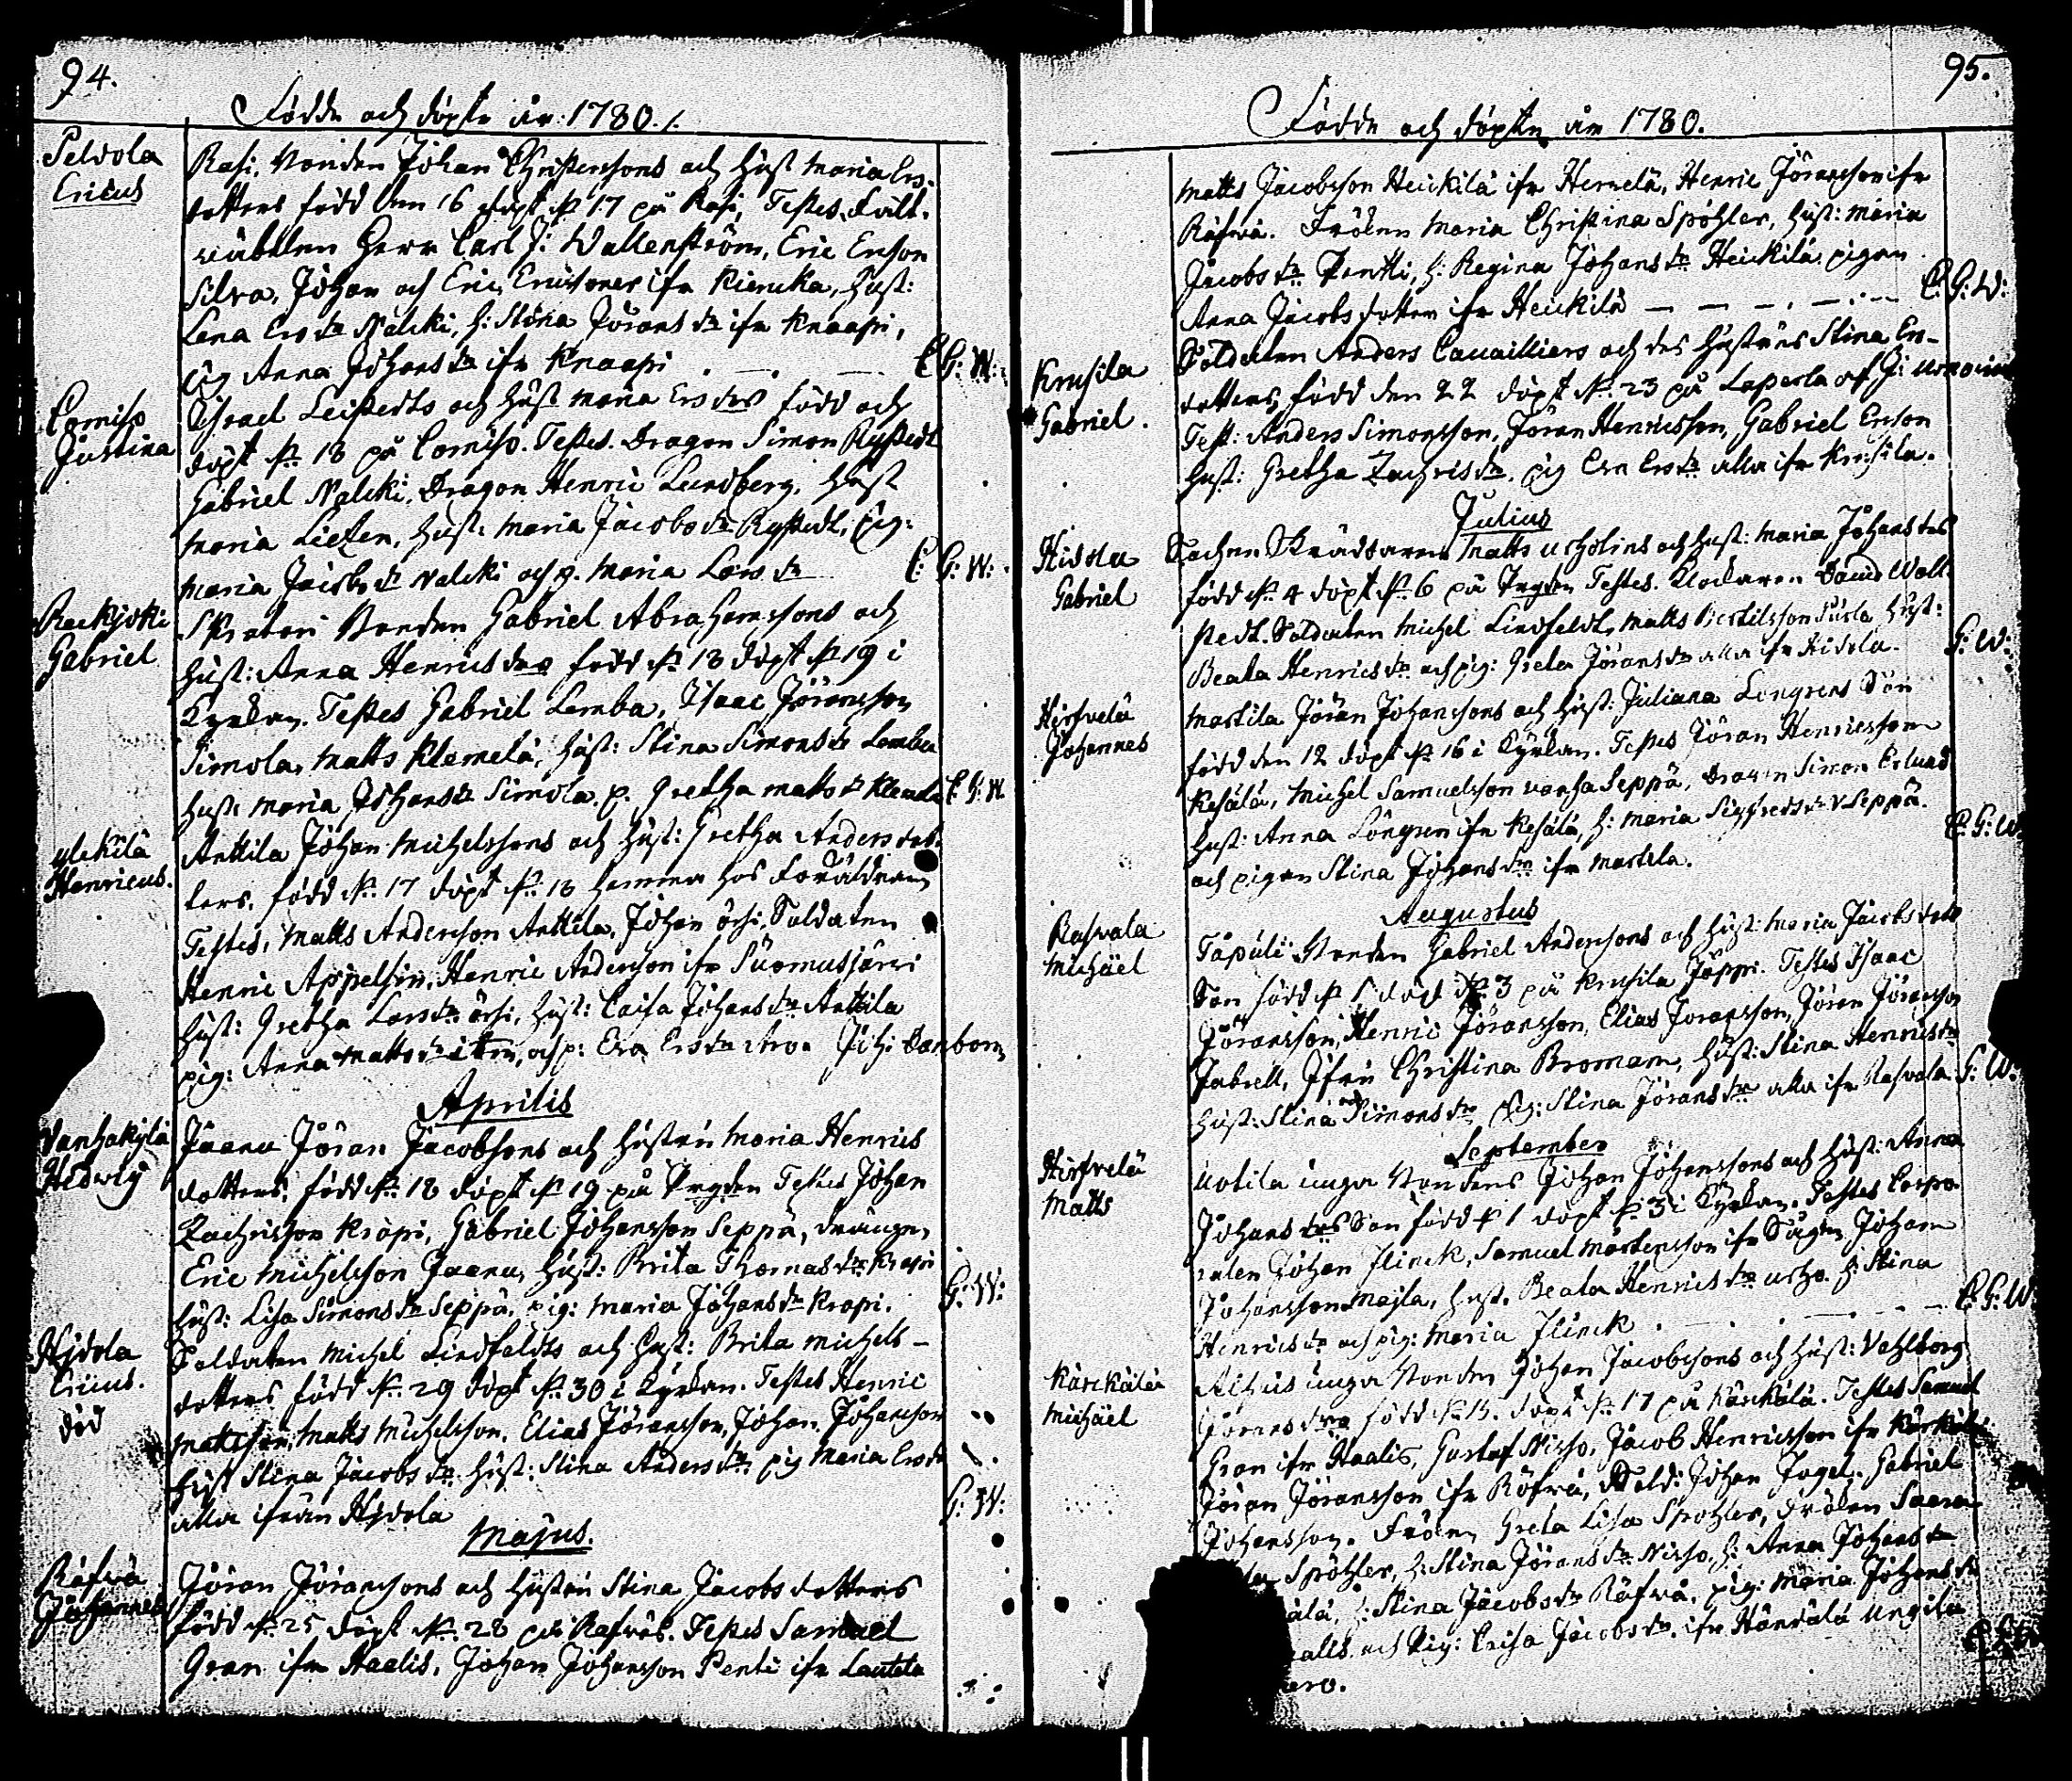 94.
Födde och döpte år 1780.
Peldola
Ericus
Rasi, Bonden Johan Christerssons och Hust Maria Ers-
dotters född den 16 döpt d: 17 på Rasi, Testes, Fält-
Herr Carl J: Wallenström, Eric Erson
Silva, Johan och Eric Ericssoner ifr Kiericka, Hust:
Lena Ersdr Nälcki, h: Stina Jöransdr ifr Knaapi,
pig Anna Johansdr ifr Knaapi C: G: W:
Comiso
Justina
Israel Leistedts och Hust Maria Ersdrs född och
döpt d: 18 på Comiso. Testes. Dragon Simon Rystedt
Gabriel Nalcki, Dragon Henric Lundberg, Hust
Maria Lieten, Hust: Maria Jacobsdr Rystedt, pig:
Maria Jacobsdr Nalcki och p. Maria Larsdr C: G: W:
Rackijoki
Gabriel
Bonden Gabriel Abrahamssons och
Hust: Anna Henricsdrs född d: 18 döpt d: 19 i
Kyrkan. Testes Gabriel Lemba, Isaac Jöransson
Simola, Matts Klemelä, Hust: Stina Simonsdr Lemba
Hust: Maria Johansdr Simola. p. Gretha Mattsdr C: G: W.
ylikilä
Henricus.
Anttila Johan Michelssons och Hust: Gretha Andersdot-
ters, född d: 17 döpt d: 18 hemma hos Föräldrarne
Testes, Matts Andersson Anttila, Johan örhi, Soldaten
Henric Appelgrin, Henric Andersson ifr Suomusjärvi
Hust: Gretha Larsdr örhi, Hust: Caisa Johansdr Anttila
pig: Anna Mattsdr item, och p: Eva Ersdr Joh: Danbom
Aprilis
Vanhakylä
Hedvig
Jaanu Jöran Jacobssons och Hustrus Maria Henrics
dotters, född d: 18 döpt d: 19 på Prgdn Testes Johan
Zachrisson Kropi, Gabriel Johansson Seppä, drängen
Eric Michelsson Jaanu, Hust: Brita Thomasdr Kropi
Hust: Lisa Simonsdr Seppä, pig: Maria Johansdr Kropi. G: W:
Hidola
Ericus.
död
Soldaten Michel Lindfeldts och Hust: Brita Michels-
dotters född d: 29 döpt d: 30 i Kyrkan. Testes Henric
Mattsson, Matts Michelsson, Elias Jöransson, Johan Johansson
Hust Stina Jacobsdr Hust: Stina Andersdr pig Maria Ersdr
alla ifrån Hidola G: W:
Majus.
Räfvä
Johannes
Jöran Jöranssons och Hustrus Stina Jacobsdotters
född d: 25 döpt d: 28 på Rafvä. Testes Samuel
Gran ifr Haalis, Johan Johansson Penti ifr Lautela
95.
Födde och döpte år 1780.
Matts Jacobsson Heickilä ifr Hemelä, Henric Jöransson ifr
Räfvä. Fröken Maria Christina Spöhler, Hust: Maria
Jacobsdr Pentti, h: Regina Johansdr Heickilä, pigan
Anna Jacobs dotter ifr Heickilä C: G: W:
Krusila
Gabriel.
Soldaten Anders Cavailliers och des Hustrus Stina Ers-
dotters, född den 22 döpt d: 23 på Laperla af J:
Test: Anders Simonsson, Jöran Henricsson, Gabriel Erson
Hust: Gretha Zachrisdr, pig Eva Ersdr alla ifr Krusila.
Julius
Hidola
Gabriel
Sachen Skräddaren Matts Urholins och Hust: Maria Johansdrs
född d: 4 döpt d: 6 på Prgdn Testes. Klockaren David Woll-
stedt. Soldaten Michel Lindfeldt, Matts Bertilsson Hust:
Beata Henricsdr och pig: Greta Jöransdr alla ifr Hidola. G: W:
Hirfvelä
Johannes
Martila Jöran Johanssons och Hust: Juliana Löngrens Son
född den 12 döpt d: 16 i Kyrkan. Testes Jöran Henricsson
Kesälä, Michel Samuelsson vanha Seppä, Dragon Simon Erlund
Hust: Anna Löngren ifr Kesälä, h: Maria Sigfredsdr v Seppä.
och pigan Stina Johansdr ifr Martela. C: G: W.
Augustus
Rasvala
Michäel
Tapuli Bonden Gabriel Anderssons och Hust: Maria Jacobsdotts
Son född d: 1 döpt d: 3 på Krusila Jöppi. Testes Isaac
Jöransson, Henric Jöransson, Elias Joransson, Jöran Jöransson
Jabrell, Jfru Christina Broman, Hust: Stina Henricsdr
Hust: Stina Simonsdr pig: Stina Jöransdr alla ifr Rasvala. G: W.
September
Hirfvelä
Matts
Uotila unga Bondens Johan Johanssons och Hust: Anna
Johansdrs Son född d 1 döpt d: 3 i Kyrkan. Testes Corpo-
ralen Johan Flinck, Samuel Mårtensson ifr Sågen, Johan
Johansson Majla, Hust. Beata Henricsdr h: Stina
Henricsdr och pig: Maria Flinck C: G: W
Kärckälä
Michäel
unga Bonden Johan Jacobssons och Hust: Vahlborg
Jöransdrs född d: 15. döpt d: 17 på Kärckälä. Testes Samuel
Gran ifr Haalis, Gustaf Nisso, Jacob Henricsson ifr Kärckälä
Jöran Jöransson ifr Räfvä, Sold: Johan Fogel, Gabriel
Johansson. Fröken Greta Lisa Spöhler, Fröken Saara
Spöhler, h: Stina Jöransdr Nisso, h: Anna Johansdr
älä, h: Stina Jacobsdr Räfvä, pig: Maria Johansdr
och pig: Caisa Jacobsdr. ifr